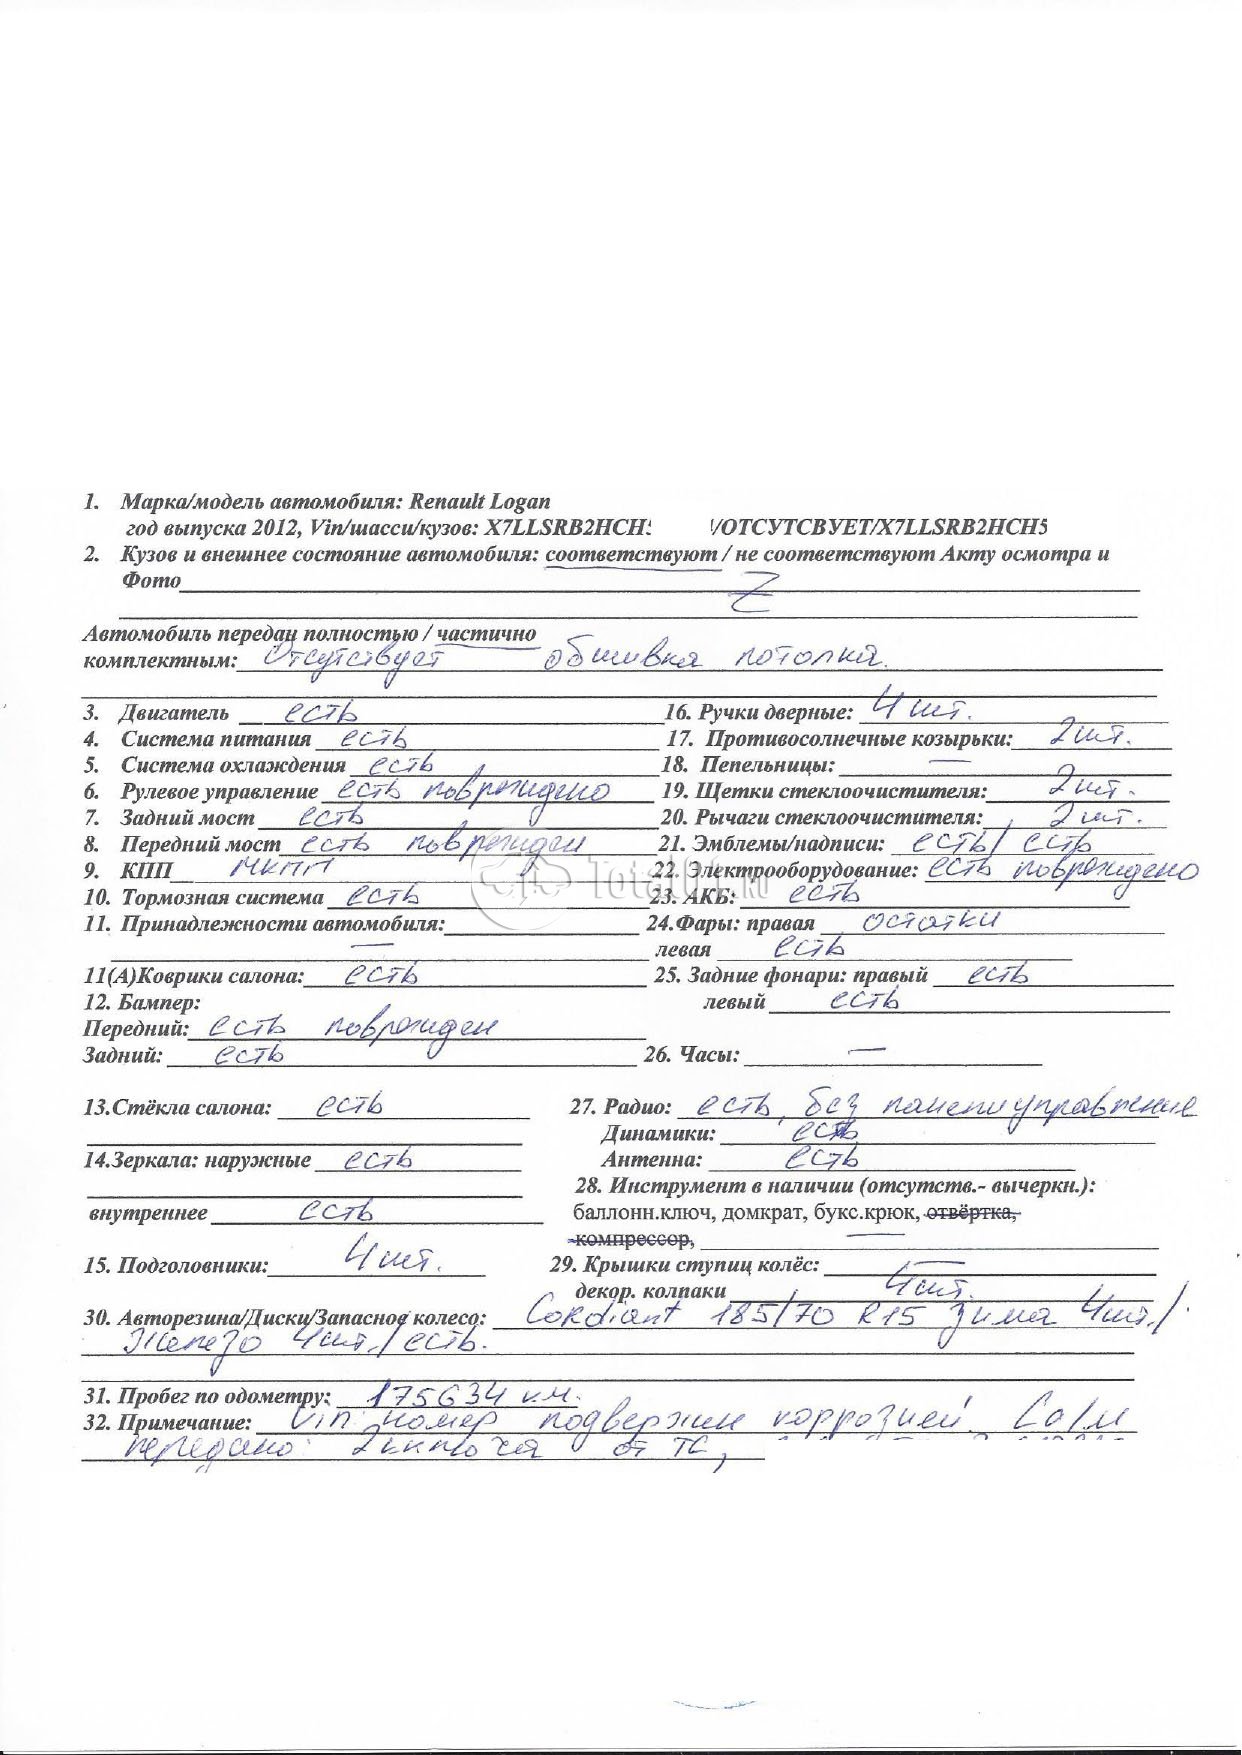 1. Марка/модель автомобиля: Renault Logan
год выпуска 2012, Vin/шасси/кузов: X7LLSRB2HCH5 /ОТСУТСВУЕТ/X7LLSRB2HCH5
2. Кузов и внешнее состояние автомобиля: соответствуют / не соответствуют Акту осмотра и
Фото Z
Автомобиль передан полностью / частично
комплектным: Отсутствует обшивка потолка.
3. Двигатель есть 16. Ручки дверные: 4 шт.
4. Система питания есть 17. Противосолнечные козырьки: 2 шт.
5. Система охлаждения есть 18. Пепельницы: —
6. Рулевое управление есть повреждено 19. Щетки стеклоочистителя: 2 шт.
7. Задний мост есть 20. Рычаги стеклоочистителя: 2 шт.
8. Передний мост есть поврежден 21. Эмблемы/надписи: есть/ есть
9. КПП МКПП 22. Электрооборудование: есть повреждено
TotalOt.RU
10. Тормозная система есть 23. АКБ: есть
11. Принадлежности автомобиля: 24.Фары: правая остатки
— левая есть
11(А)Коврики салона: есть 25. Задние фонари: правый есть
12. Бампер: левый есть
Передний: есть поврежден
Задний: есть 26. Часы: —
13.Стёкла салона: есть 27. Радио: есть, без панели управление
Динамики: есть
14.Зеркала: наружные есть Антенна: есть
28. Инструмент в наличии (отсутств.- вычеркн.):
внутреннее есть баллонн.ключ, домкрат, букс.крюк, отвёртка,
компрессор, —
15. Подголовники: 4 шт. 29. Крышки ступиц колёс: —
декор. колпаки 4шт.
30. Авторезина/Диски/Запасное колесо: Cordiant 185/70 R15 Зима 4шт./
Железо 4шт./ есть.
31. Пробег по одометру: 175634 км.
32. Примечание: Vin номер подвержен коррозией.
передано: 2 ключа от ТС,